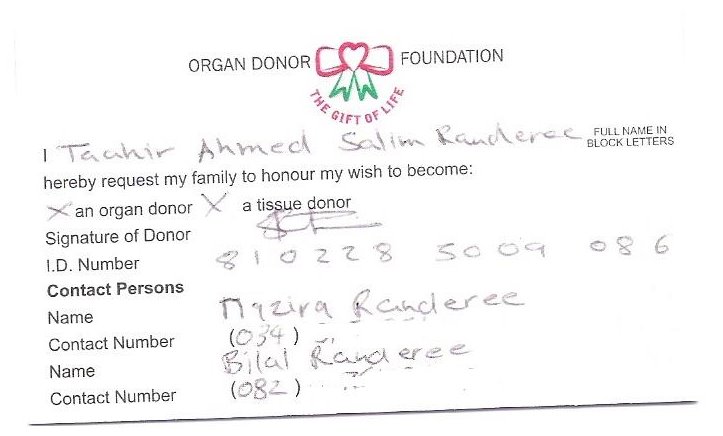 ORGAN DONOR FOUNDATION
THE GIFT OF LIFE
I Taahir Ahmed Salim Randeree FULL NAME IN BLOCK LETTERS
hereby request my family to honour my wish to become:
X an organ donor X a tissue donor
Signature of Donor
I.D. Number 810228 5009 086
Contact Persons
Name Randeree
Contact Number (034)
Name Bilal Randeree
Contact Number (082)